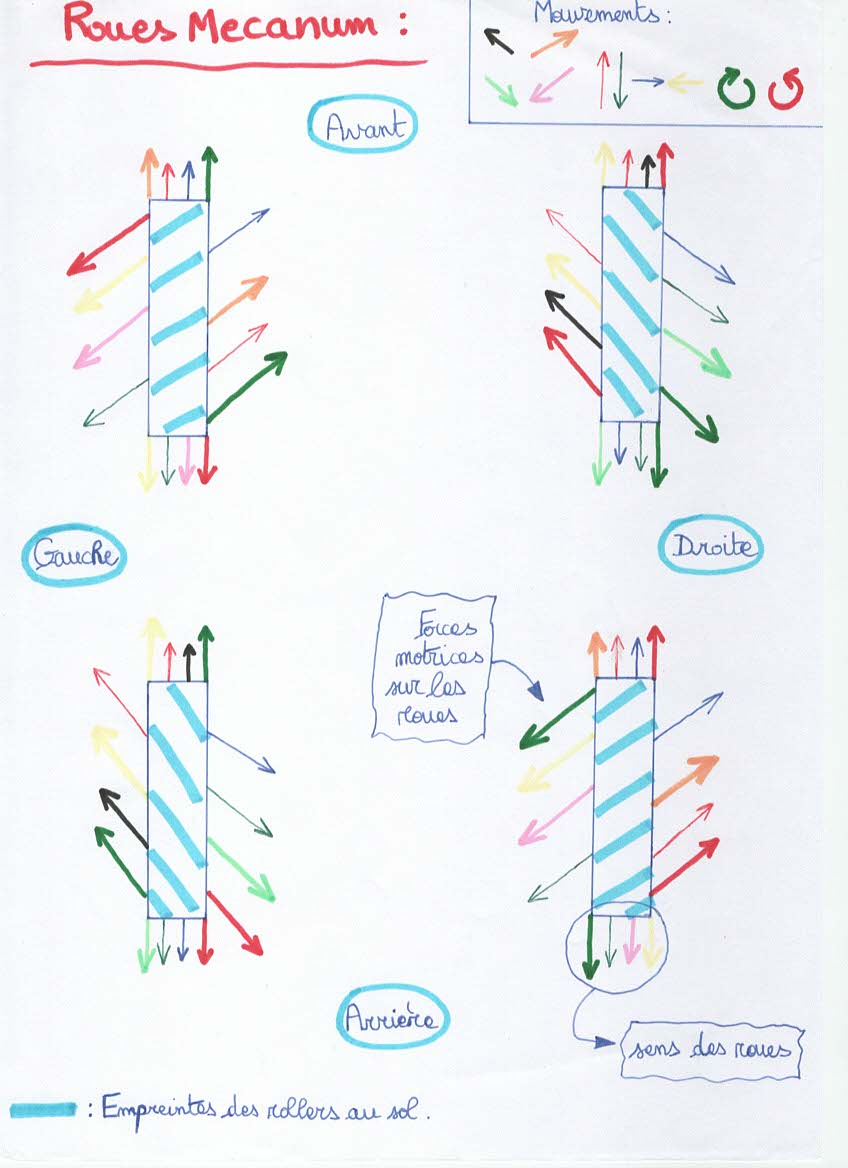 Roues Mecanum :
Mouvements :
Avant
Gauche
Droite
Forces
motrices
sur les
roues
Arrière
sens des roues
: Empreintes des rollers au sol.